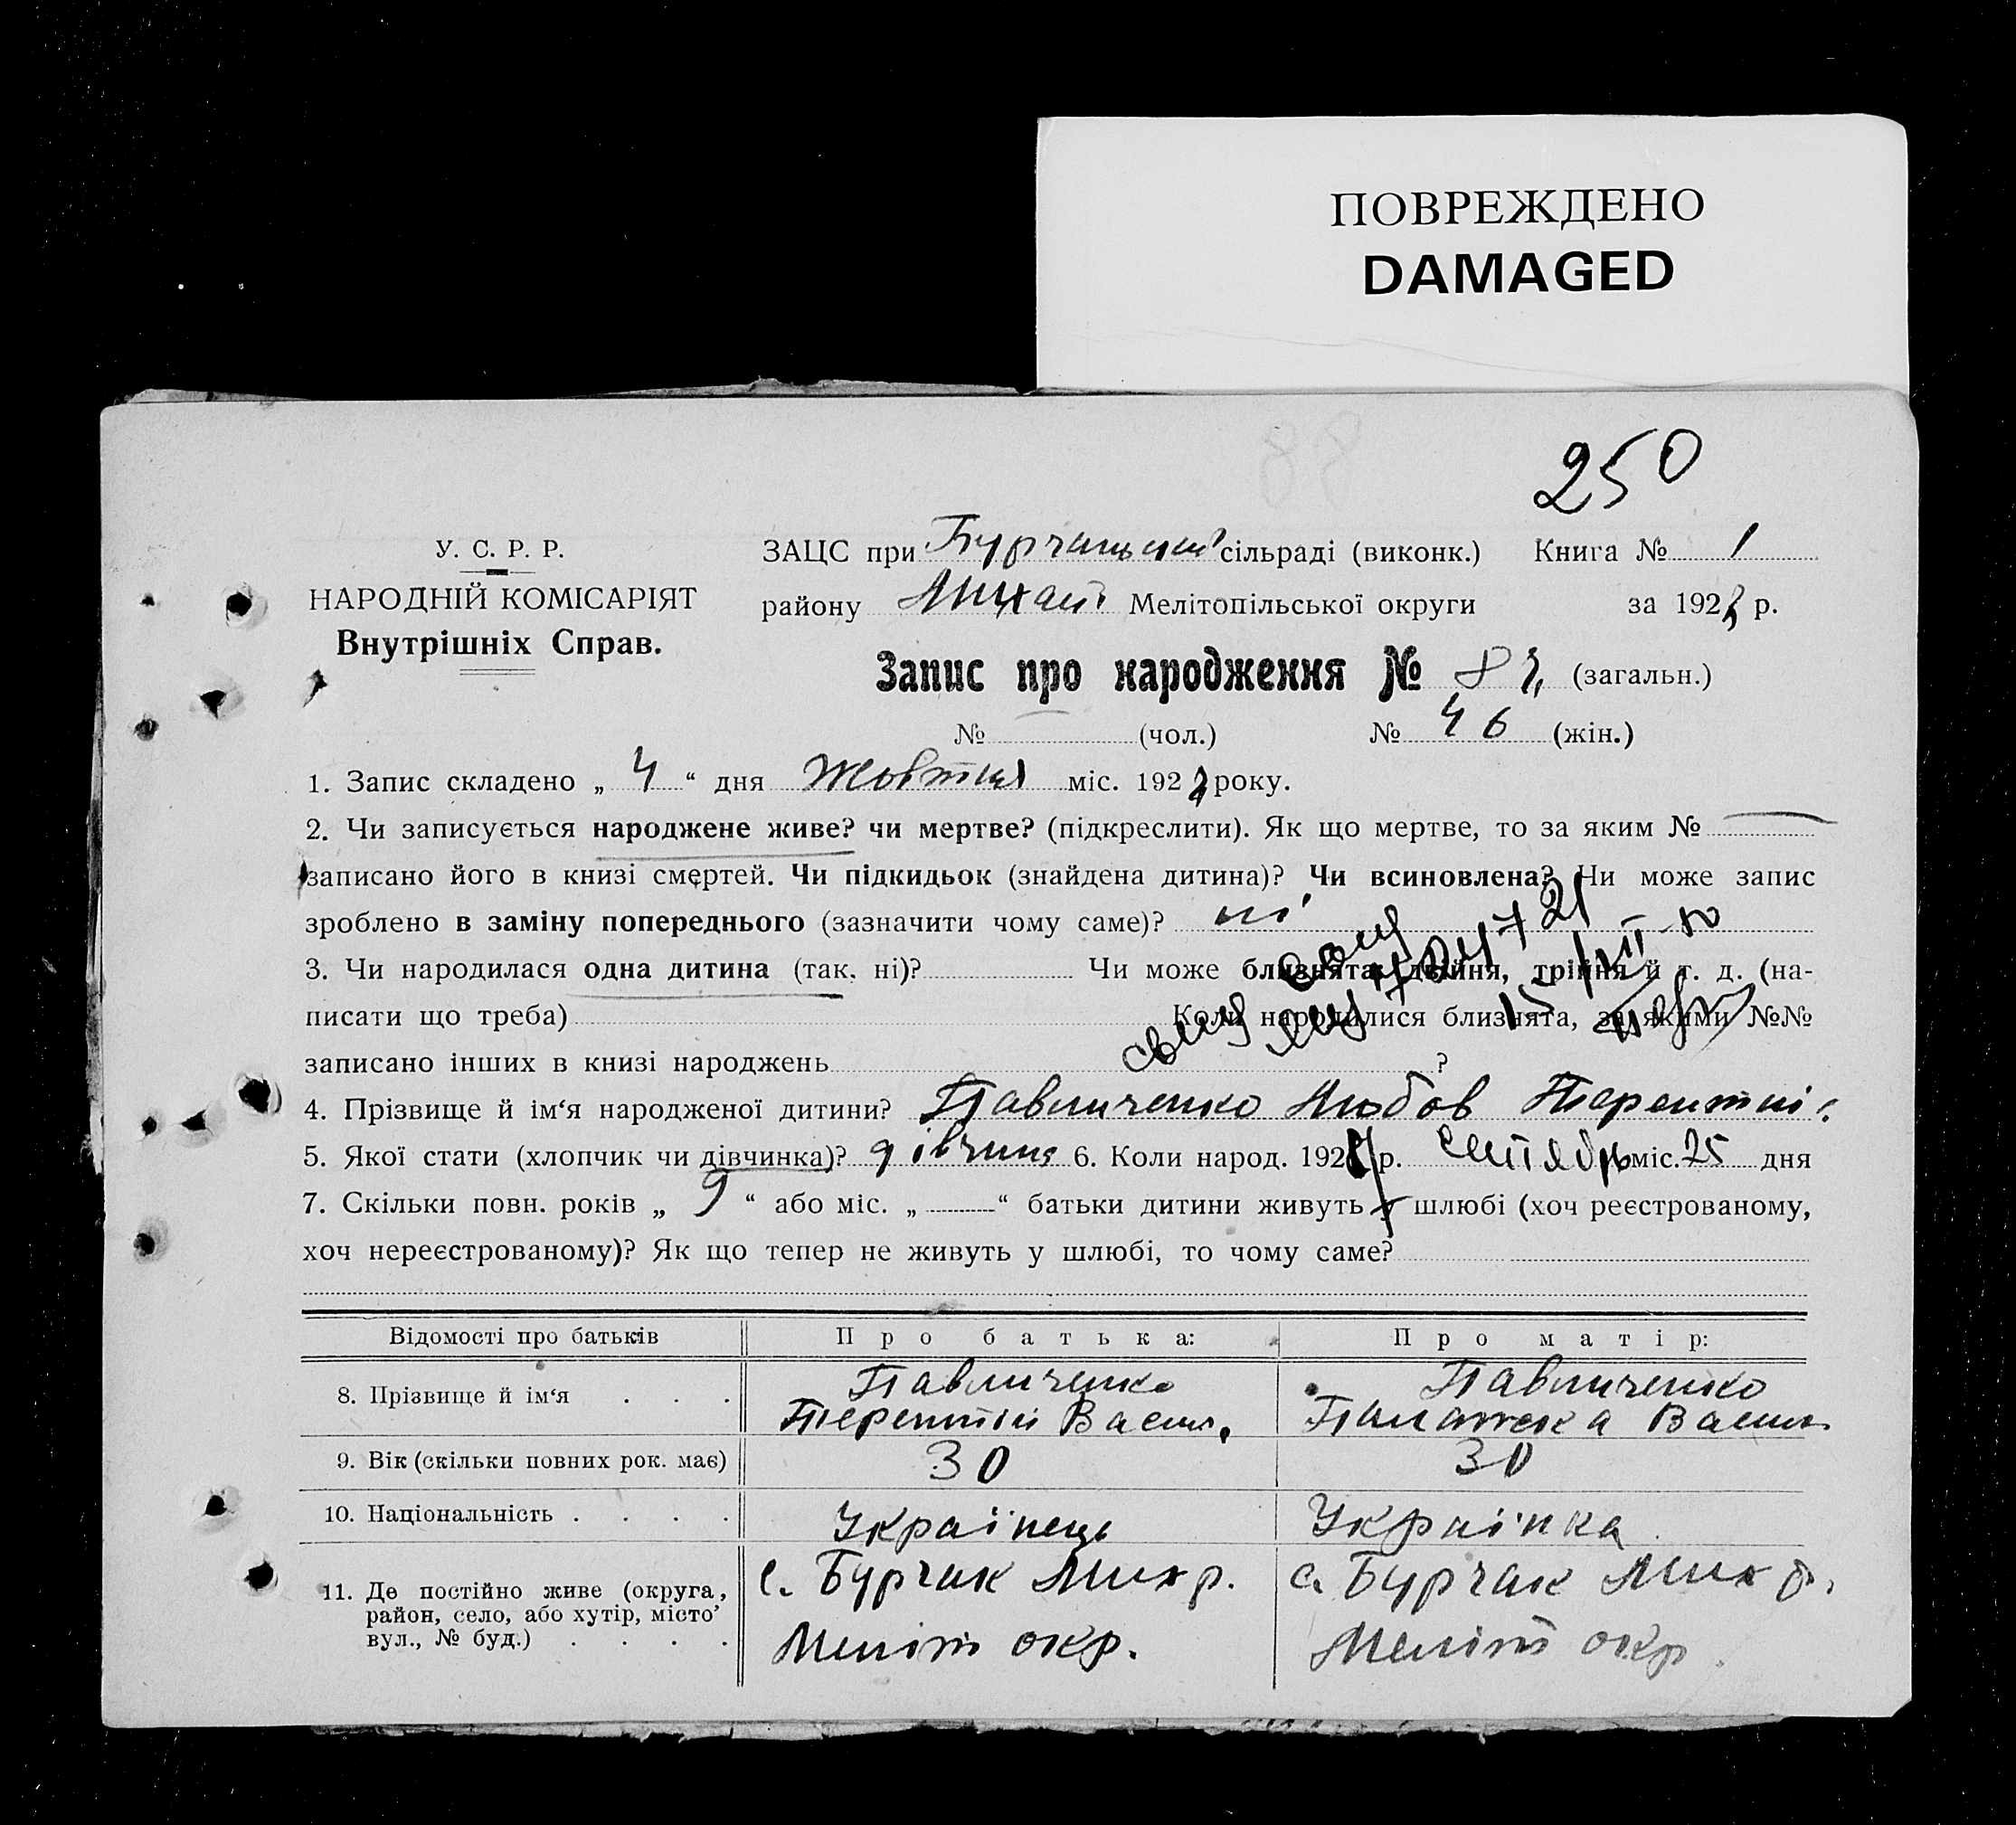 ПОВРЕЖДЕНО
DAMAGED
250
У. С. Р. Р.
НАРОДНІЙ КОМІСАРІЯТ
Внутрішніх Справ.
ЗАЦС при сільраді (виконк.) Книга № 1
району Мелітопільської округи за 192 р.
Запис про народження № (загальн.)
№ — (чол.) № 46 (жін.)
1. Запис складено „ 4 “ дня Жовтня міс. 192 року.
2. Чи записується народжене живе? чи мертве? (підкреслити). Як що мертве, то за яким № —
записано його в книзі смертей. Чи підкидьок (знайдена дитина)? Чи всиновлена? Чи може запис
зроблено в заміну попереднього (зазначити чому саме)? ні
3. Чи народилася одна дитина (так, ні)? Чи може близнята: двійня, трійня й т. д. (на-
писати що треба) Коли народилися близнята, за якими №№
записано інших в книзі народжень ?
4. Прізвище й ім‘я народженої дитини? Павличенко Любов
5. Якої стати (хлопчик чи дівчинка)? 6. Коли народ. 192 р. міс. 25 дня
7. Скільки повн. років „ 9 “ або міс. „ — “ батьки дитини живуть у шлюбі (хоч реєстрованому,
хоч нереєстрованому)? Як що тепер не живуть у шлюбі, то чому саме?
Відомості про батьків Про батька: Про матір:
8. Прізвище й ім‘я . . . Павличенко Терентій Васил. Павличенко Палажка Васил.
9. Вік (скільки повних рок. має) 30 30
10. Національність . . . . Українець Українка
11. Де постійно живе (округа, с. Бурчак Мих р. с. Бурчак Мих р.
район, село, або хутір, місто’
вул., № буд.) . . . . Меліт окр. Меліт окр